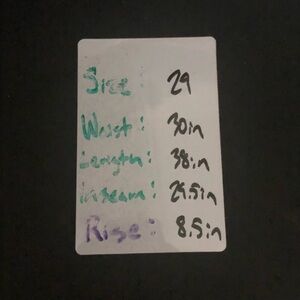 Size: 29
Waist: 30in
Length: 38in
inseam: 29.5in
Rise: 8.5in